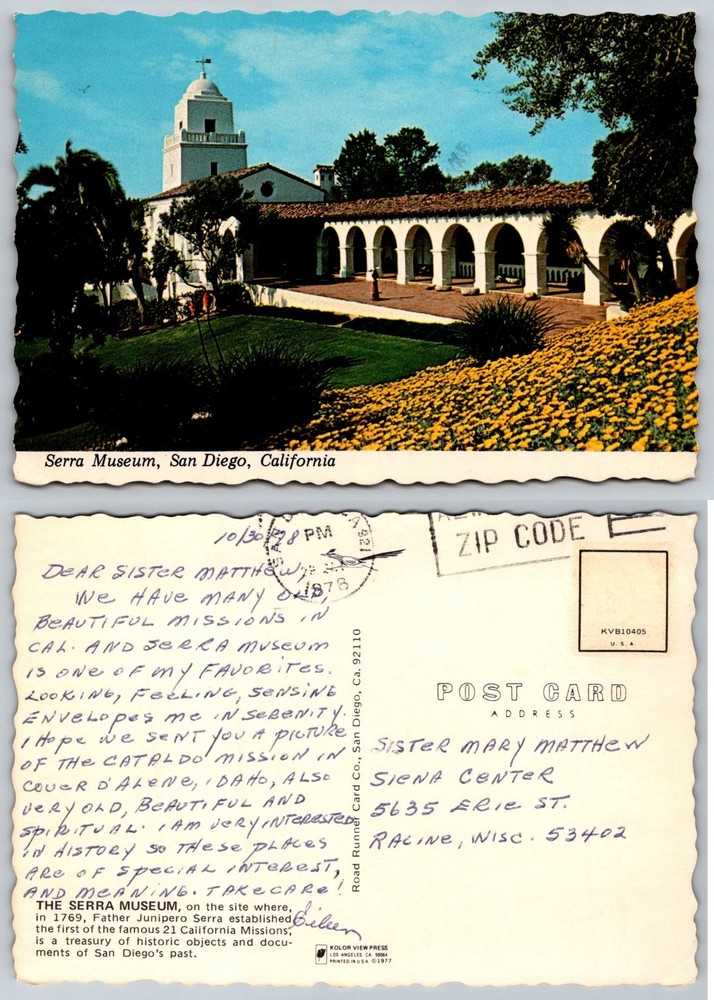 Serra Museum, San Diego, California
10/30/78
PM
1978
ZIP CODE
DEAR SISTER MATTHEW,
WE HAVE MANY OLD,
BEAUTIFUL MISSIONS IN
CAL. AND SERRA MUSEUM
IS ONE OF MY FAVORITES.
LOOKING, FEELING, SENSING
ENVELOPES ME IN SERENITY.
I HOPE WE SENT YOU A PICTURE
OF THE CATALDO MISSION IN
COUER D'ALENE, IDAHO, ALSO
VERY OLD, BEAUTIFUL AND
SPIRITUAL. I AM VERY INTERESTED
IN HISTORY SO THESE PLACES
ARE OF SPECIAL INTEREST,
AND MEANING. TAKE CARE!
Eileen
THE SERRA MUSEUM, on the site where,
in 1769, Father Junipero Serra established
the first of the famous 21 California Missions,
is a treasury of historic objects and docu-
ments of San Diego's past.
Road Runner Card Co., San Diego, Ca. 92110
KVB10405
U.S.A.
POST CARD
ADDRESS
SISTER MARY MATTHEW
SIENA CENTER
5635 ERIE ST.
RACINE, WISC. 53402
KOLOR VIEW PRESS
LOS ANGELES, CA. 90064
PRINTED IN U.S.A. ©1977